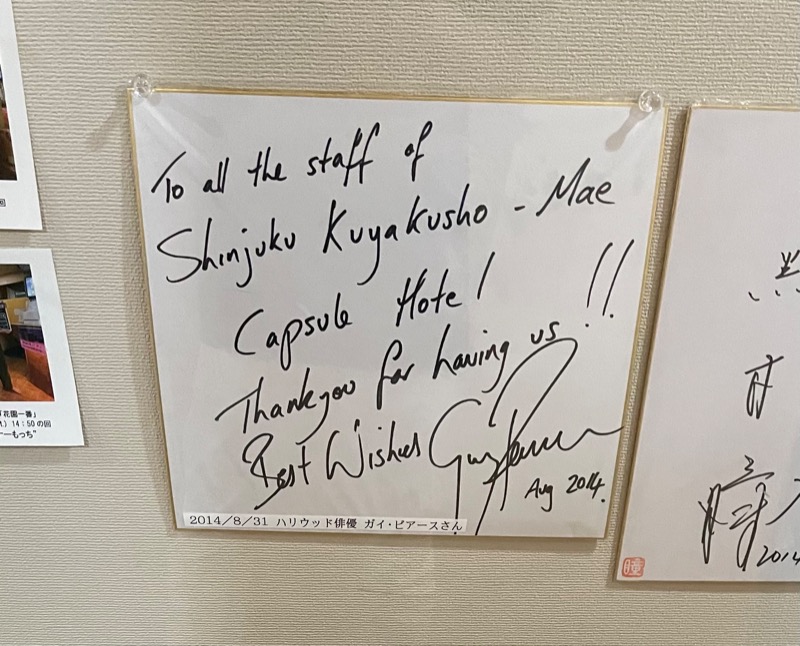 To all the staff of
Shinjuku Kuyakusho - Mae
Capsule Hotel
Thankyou for having us !!
Best Wishes Guy Pearce
Aug 2014.
2014/8/31 ハリウッド俳優 ガイ・ピアースさん
回
「花園一番」
14:50の回
ーもっち"
2014
瞳